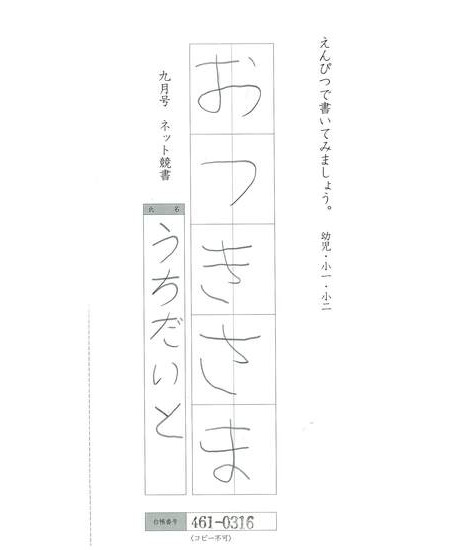 えんぴつで書いてみましょう。 幼児・小一・小二
おつきさま
九月号 ネット競書
氏 名
うちだいと
台帳番号 461-0316
(コピー不可)